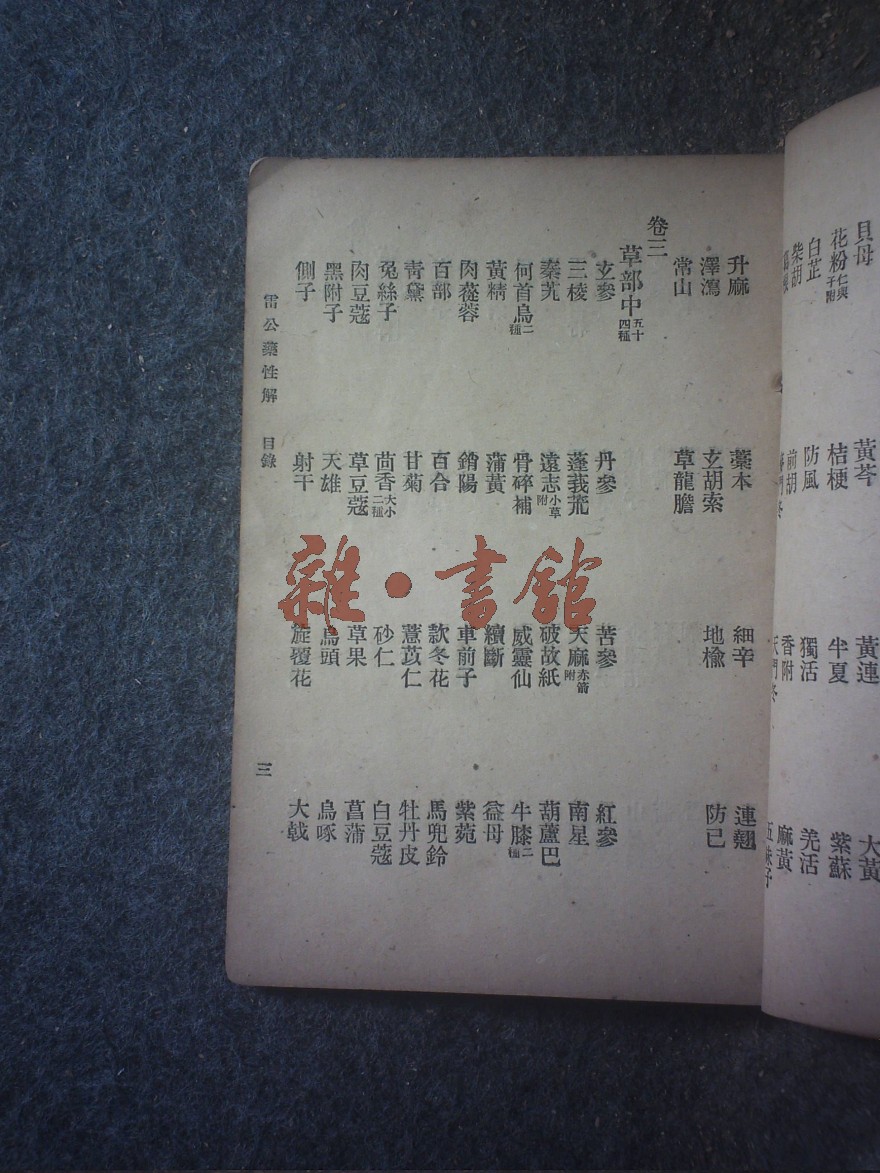 貝母 黃芩 黃連 大黃
花粉仁與子附 桔梗 半夏 紫蘇
白芷 防風 獨活 羌活
柴胡 前胡 香附 麻黃
門冬 天門冬 五味子
升麻 藁本 細辛 連翹
澤瀉 玄胡索 地榆 防已
常山 草龍膽
卷三
草部中五十四種
玄參 丹參 苦參 紅參
三棱 蓬莪茂 天麻赤箭附 南星
秦艽 遠志小草附 破故紙 葫蘆巴
何首烏二種 骨碎補 威靈仙 牛膝二種
黃精 蒲黃 續斷 益母
肉蓯蓉 鎖陽 車前子 紫菀
百部 百合 款冬花 馬兜鈴
青黛 甘菊 薏苡仁 牡丹皮
兔絲子 茴香大小二種 砂仁 白豆蔻
肉豆蔻 草豆蔻 草果 菖蒲
黑附子 天雄 烏頭 烏啄
側子 射干 旋覆花 大戟
雷公藥性解 目錄 三
雜·書館